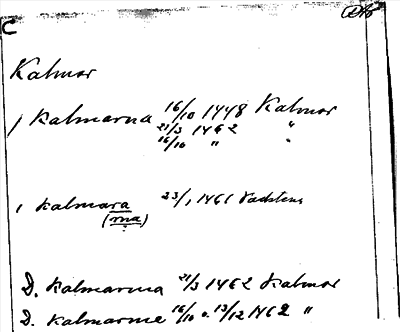 C
Kalmar
j Kalmarna 16/10 1448 Kalmar
21/3 1462 "
16/10 " "
i Kalmara 23/1 1461 Vadstena
(rna)
D. Kalmarna 21/3 1462 Kalmar
D. Kalmarne 16/10 o. 13/12 1462 "